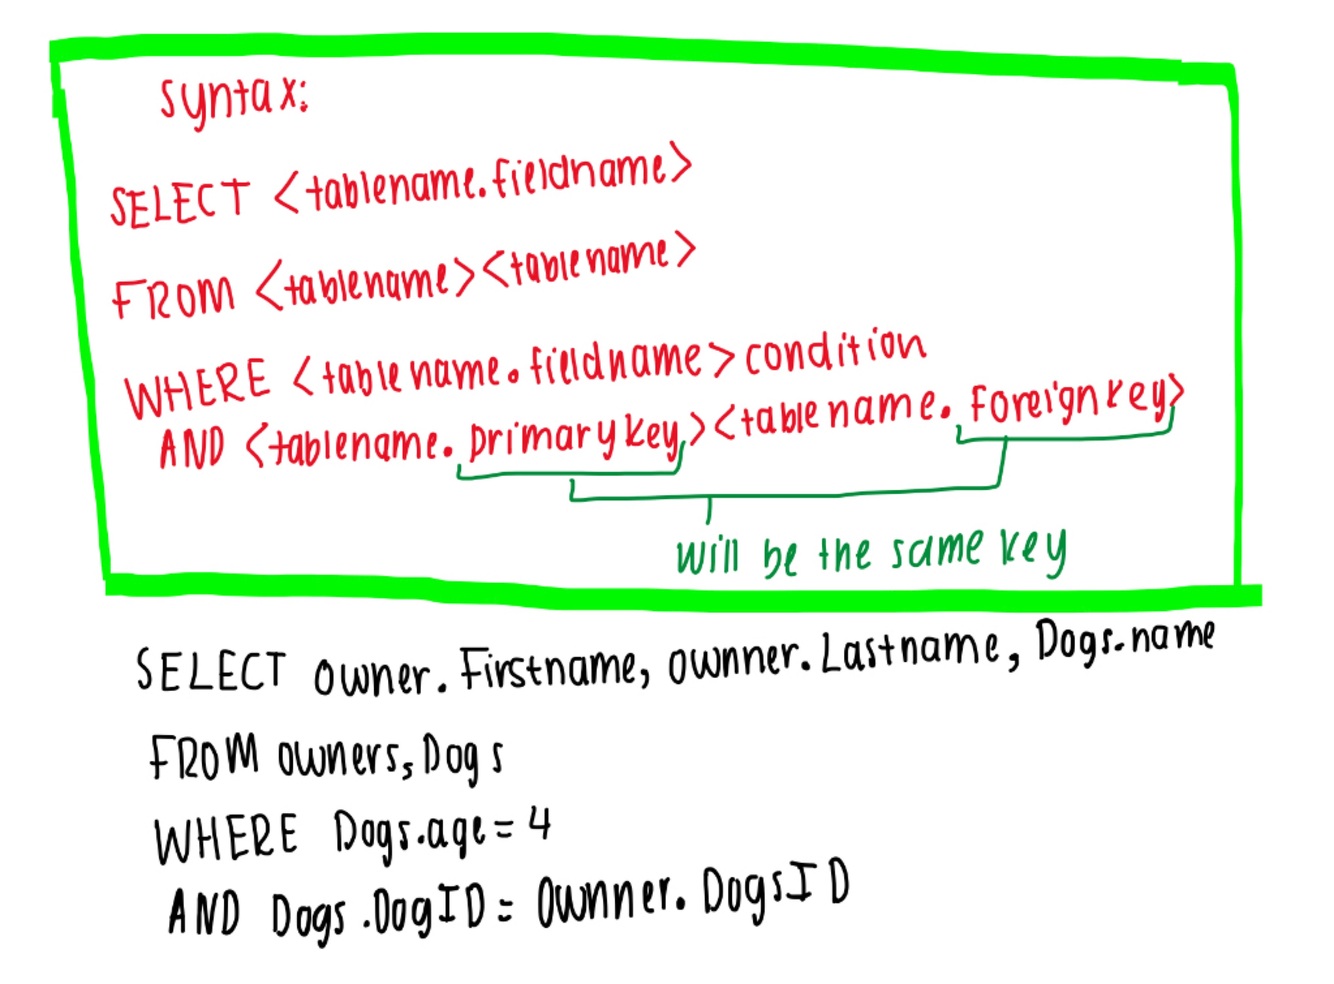 syntax:
SELECT <tablename.fieldname>
FROM <tablename><tablename>
WHERE <tablename.fieldname>condition
AND <tablename.primarykey><tablename.foreignkey>
will be the same key
SELECT owner.Firstname, ownner.Lastname, Dogs.name
FROM owners,Dogs
WHERE Dogs.age=4
AND Dogs.DogID= Ownner.DogsID